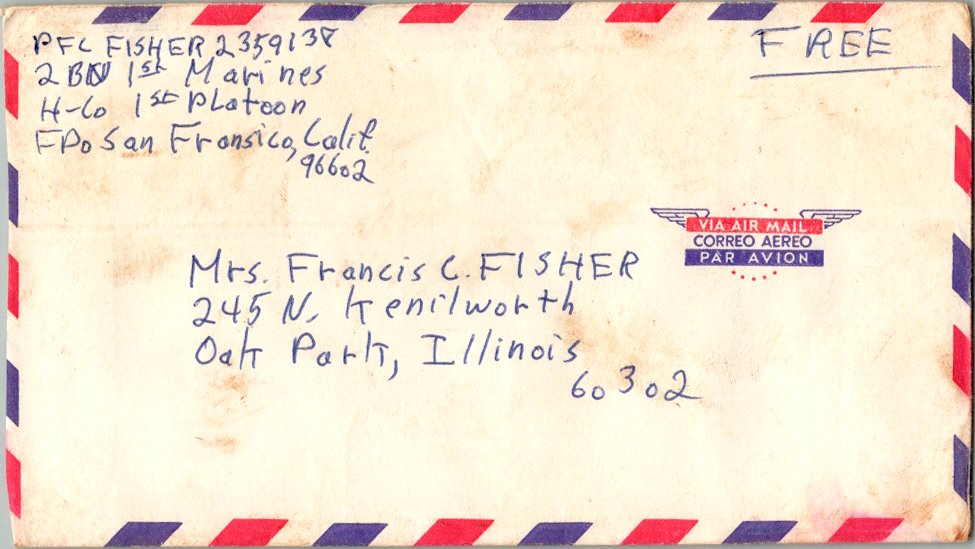 PFC FISHER 2359138
2 BN 1st Marines
H-Co 1st Platoon
FPO San Fransico, Calif.
96602
FREE
VIA AIR MAIL
CORREO AEREO
PAR AVION
Mrs. Francis C. FISHER
245 N. Kenilworth
Oak Park, Illinois
60302